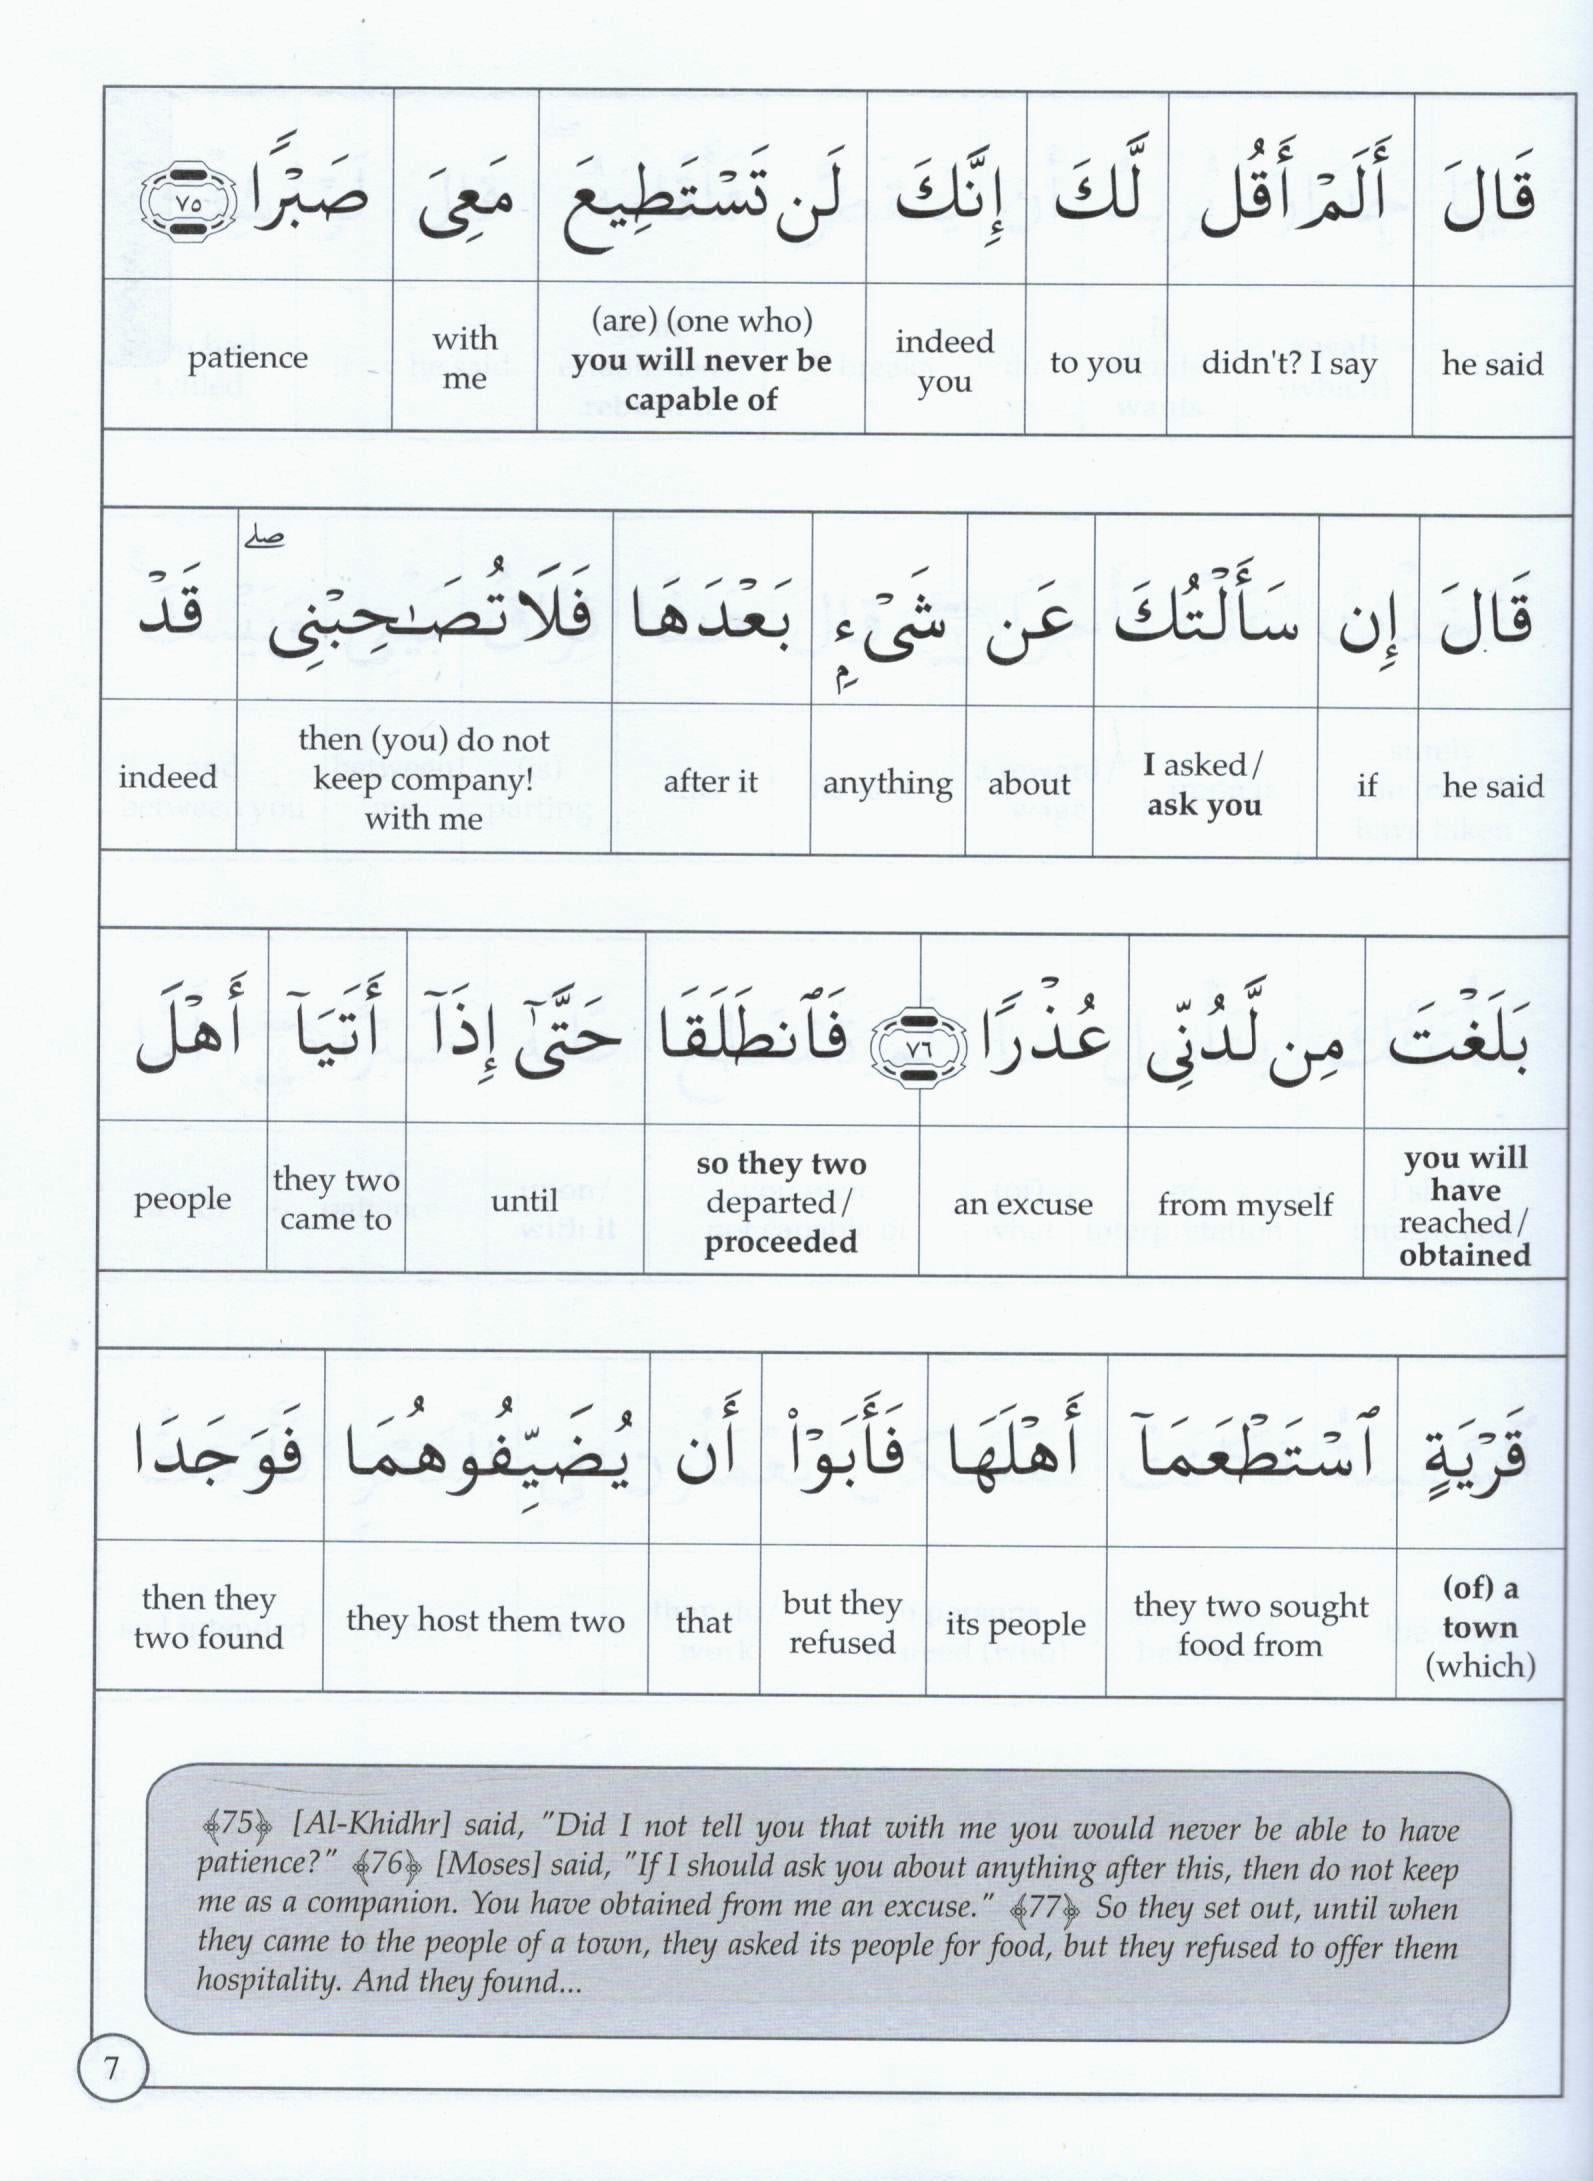 قَالَ أَلَمْ أَقُل لَّكَ إِنَّكَ لَن تَسْتَطِيعَ مَعِىَ صَبْرًا ٧٥
he said didn't? I say to you indeed you (are) (one who) you will never be capable of with me patience
قَالَ إِن سَأَلْتُكَ عَن شَىْءٍۭ بَعْدَهَا فَلَا تُصَـٰحِبْنِى ۖ قَدْ
he said if I asked/ ask you about anything after it then (you) do not keep company! with me indeed
بَلَغْتَ مِن لَّدُنِّى عُذْرًا ٧٦ فَٱنطَلَقَا حَتَّىٰٓ إِذَآ أَتَيَآ أَهْلَ
you will have reached/ obtained from myself an excuse so they two departed/ proceeded until they two came to people
قَرْيَةٍ ٱسْتَطْعَمَآ أَهْلَهَا فَأَبَوْا۟ أَن يُضَيِّفُوهُمَا فَوَجَدَا
(of) a town (which) they two sought food from its people but they refused that they host them two then they two found
﴾75﴿ [Al-Khidhr] said, "Did I not tell you that with me you would never be able to have
patience?" ﴾76﴿ [Moses] said, "If I should ask you about anything after this, then do not keep
me as a companion. You have obtained from me an excuse." ﴾77﴿ So they set out, until when
they came to the people of a town, they asked its people for food, but they refused to offer them
hospitality. And they found...
7